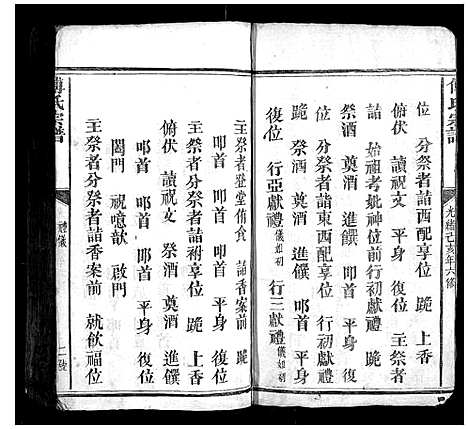 位 分祭者詣西配享位 跪 上香
俯伏 讀祝文 平身 復位 主祭者
詣 始祖考妣神位前行初獻禮 跪
祭酒 奠酒 進饌 叩首 平身 復
位 分祭者詣東西配享位 跪 上香
跪 祭酒 奠酒 進饌 叩首 平身
復位 行亞獻禮儀如初 行三獻禮儀如初
光緒己亥年六修
傅氏宗譜
傅氏宗譜
禮儀
主祭者登堂侑食 詣香案前 跪
叩首 叩首 叩首 平身 復位
主祭者分祭者詣祔享位 跪 上香
俯伏 讀祝文 祭酒 奠酒 進饌
叩首 叩首 叩首 平身 復位
闔門 祝噫歆 啟門
主祭者分祭者詣香案前 就飲福位